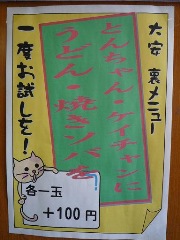 大安 裏メニュー
とんちゃん・ケイチャンに
うどん・焼きソバを
一度お試しを!
各一玉
+100円